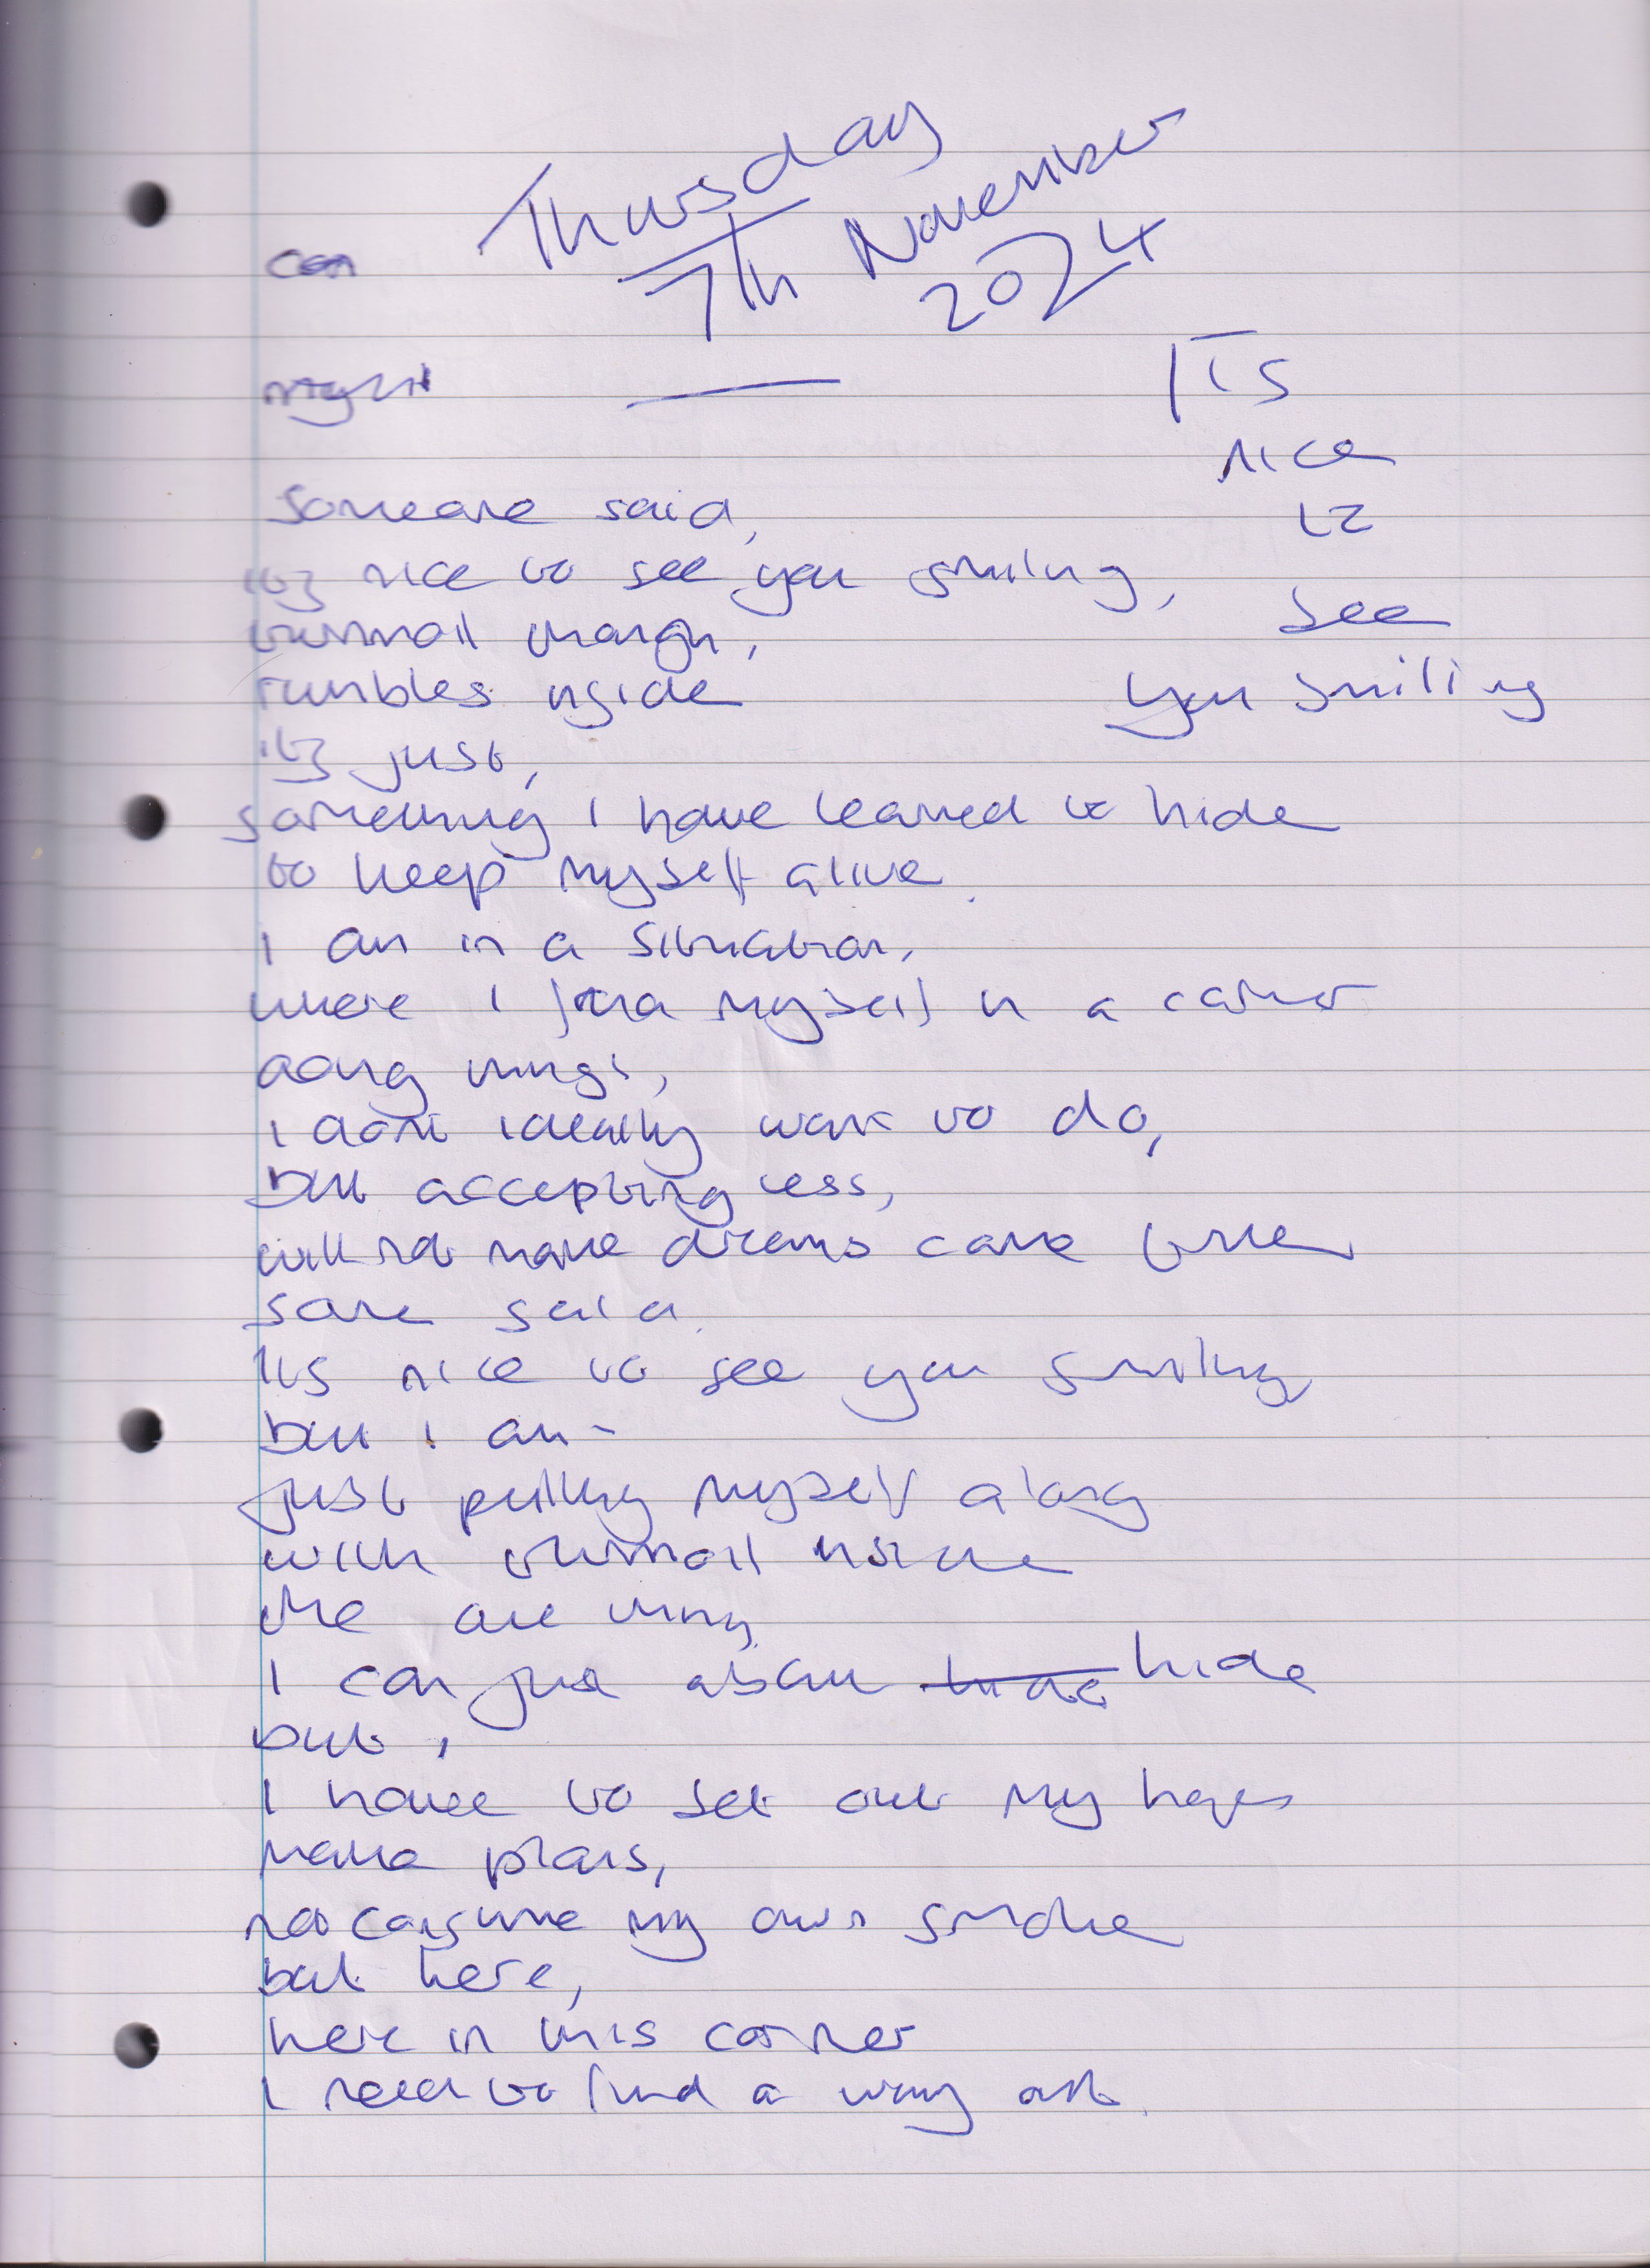 Thursday
7th November
2024
can
night
Its
nice
to
see
you smiling
Someone said,
its nice to see you smiling,
turmoil though,
rumbles inside
its just,
something I have learned to hide
to keep myself alive.
I am in a situation,
where I find myself in a corner
doing things,
I dont ideally want to do,
but accepting less,
will not make dreams come true
some said.
Its nice to see you smiling
but I am -
just pulling myself along
with turmoil inside
the are thing
I can just about hide hide
but,
I have to set out my hopes
make plans,
not consume my own smoke
but here,
here in this corner
I need to find a way out.